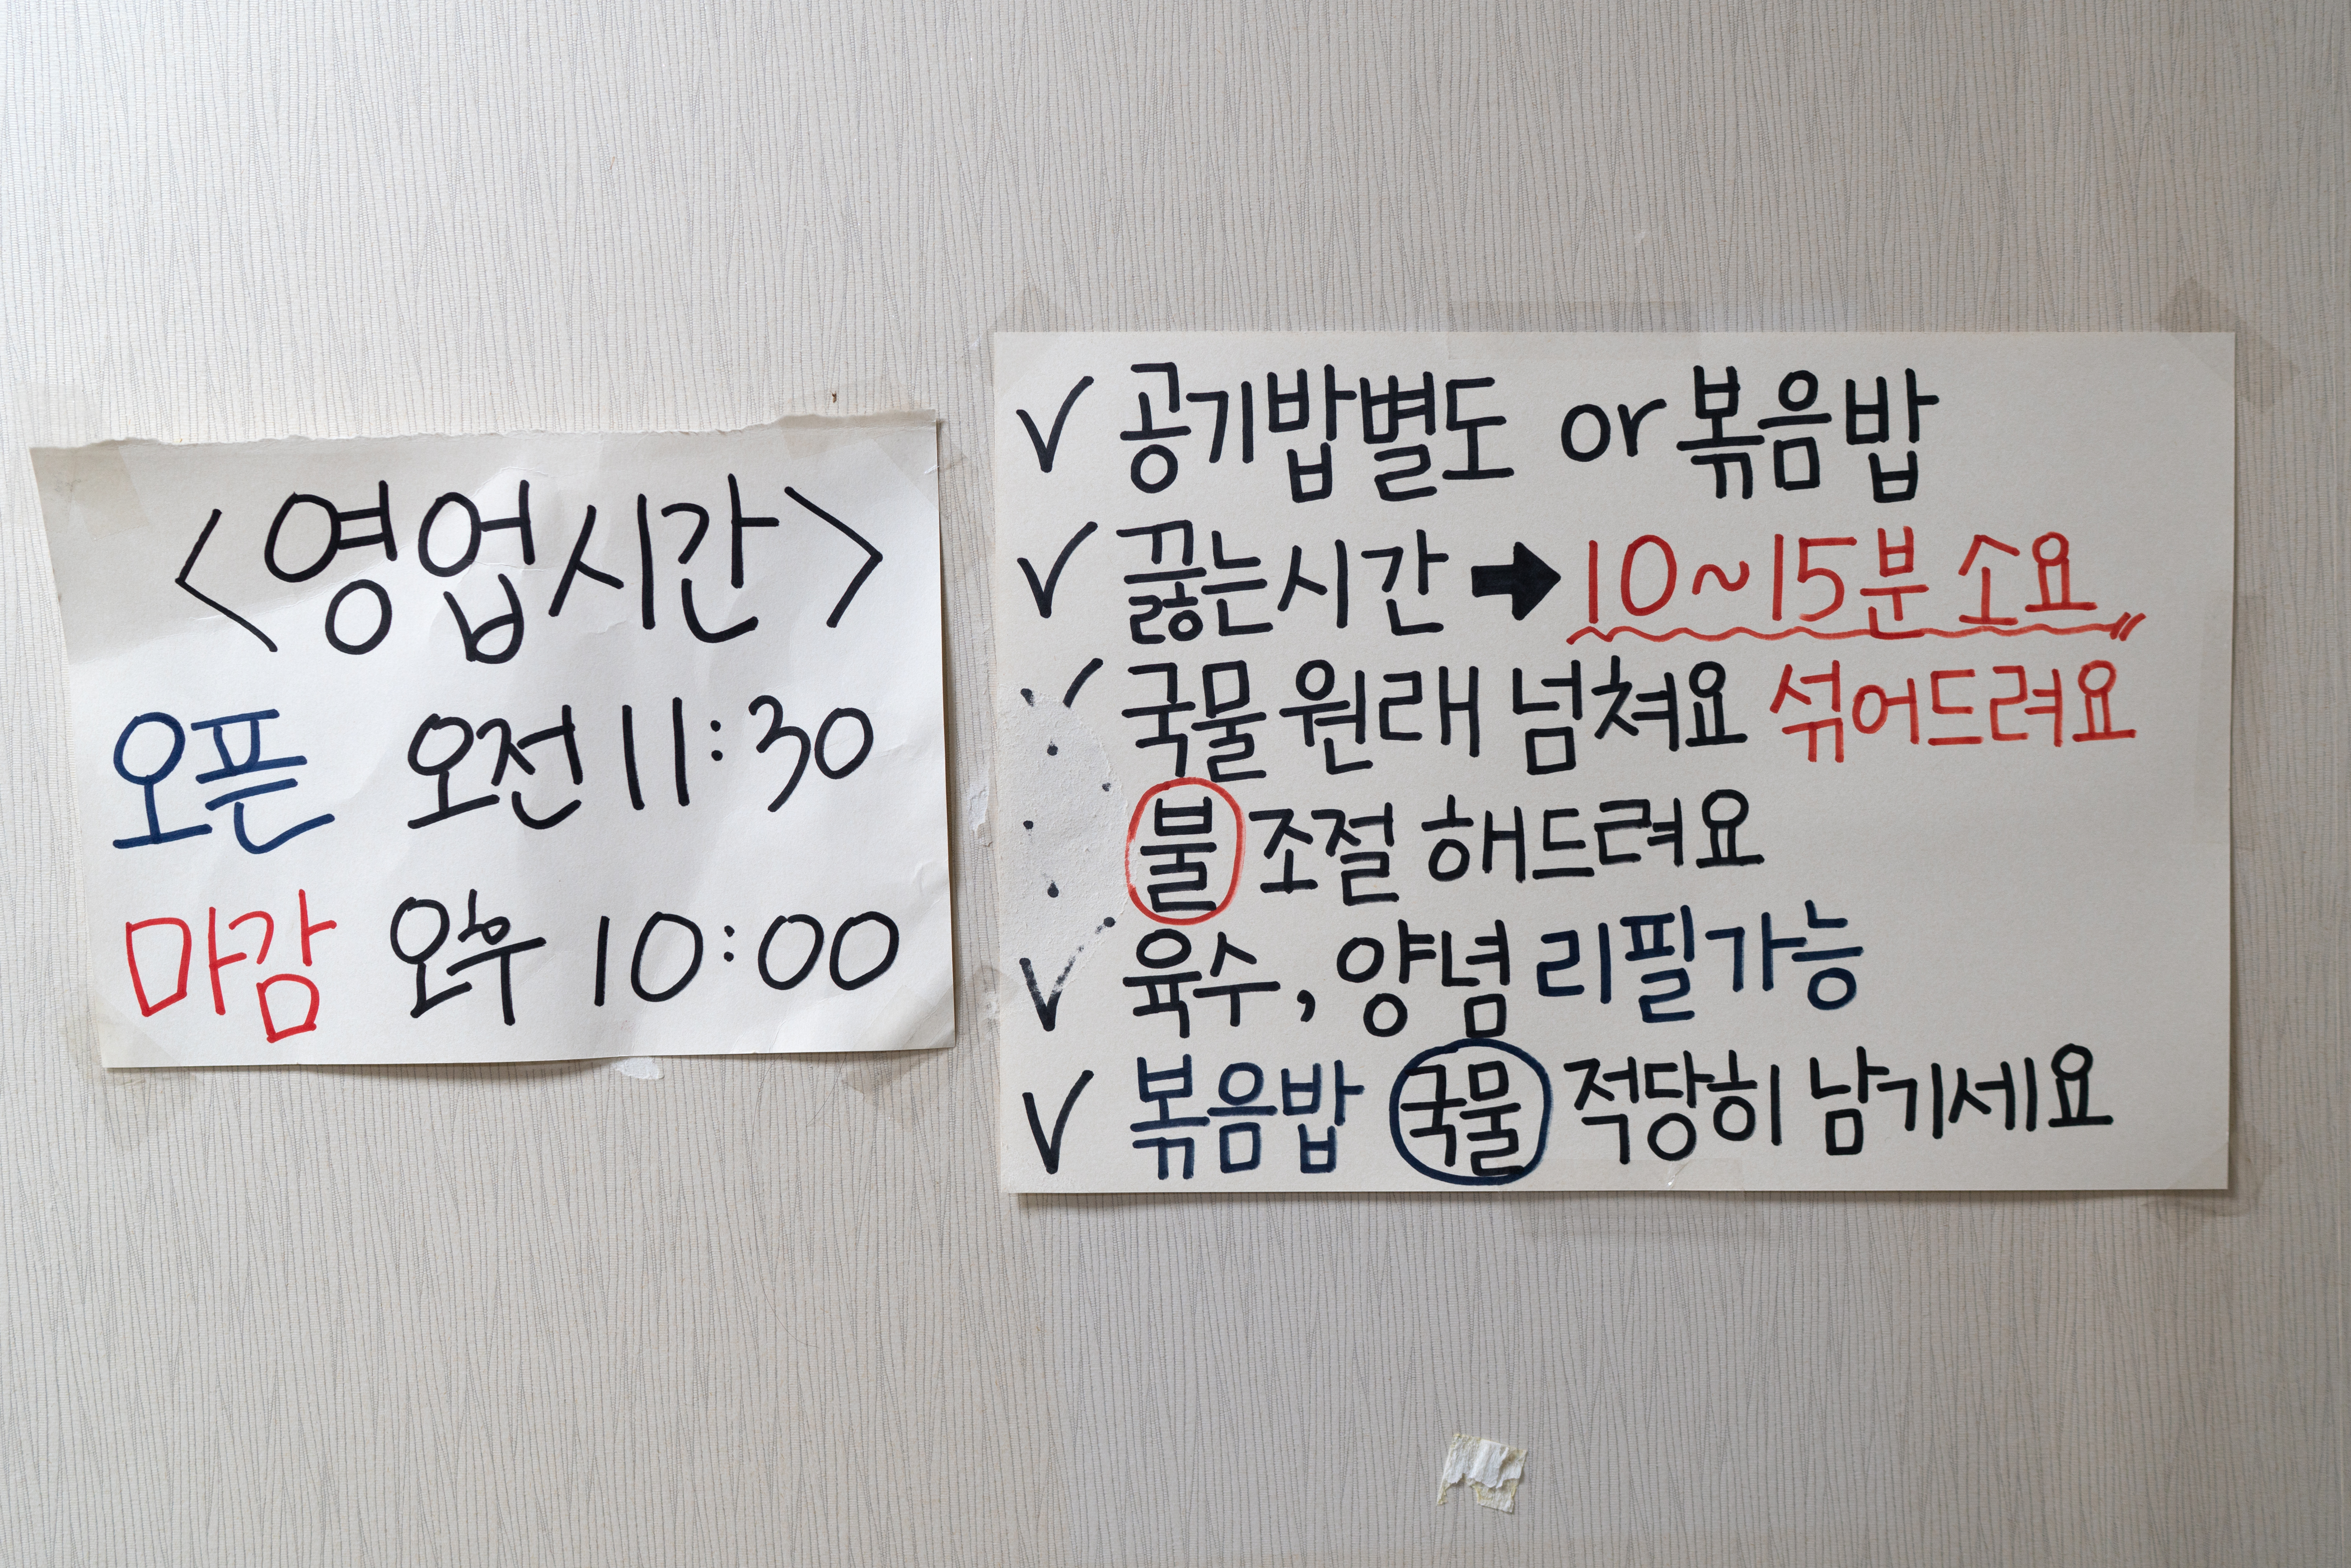 <영업시간>
오픈 오전 11:30
마감 오후 10:00
✓ 공기밥별도 or 볶음밥
✓ 끓는시간 ➡ 10~15분 소요
✓ 국물 원래 넘쳐요 섞어드려요
불 조절 해드려요
✓ 육수, 양념 리필가능
✓ 볶음밥 국물 적당히 남기세요